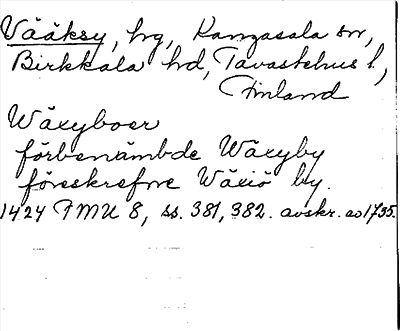 Vääksy, hrg, Kangasala sn,
Birkkala hd, Tavastehus l,
Finland
Wäxyboer
förbenämbde Wäxyby
föreskrefne Wäxiö by.
1424 FMU 8, ss. 381, 382. avskr. av 1735.